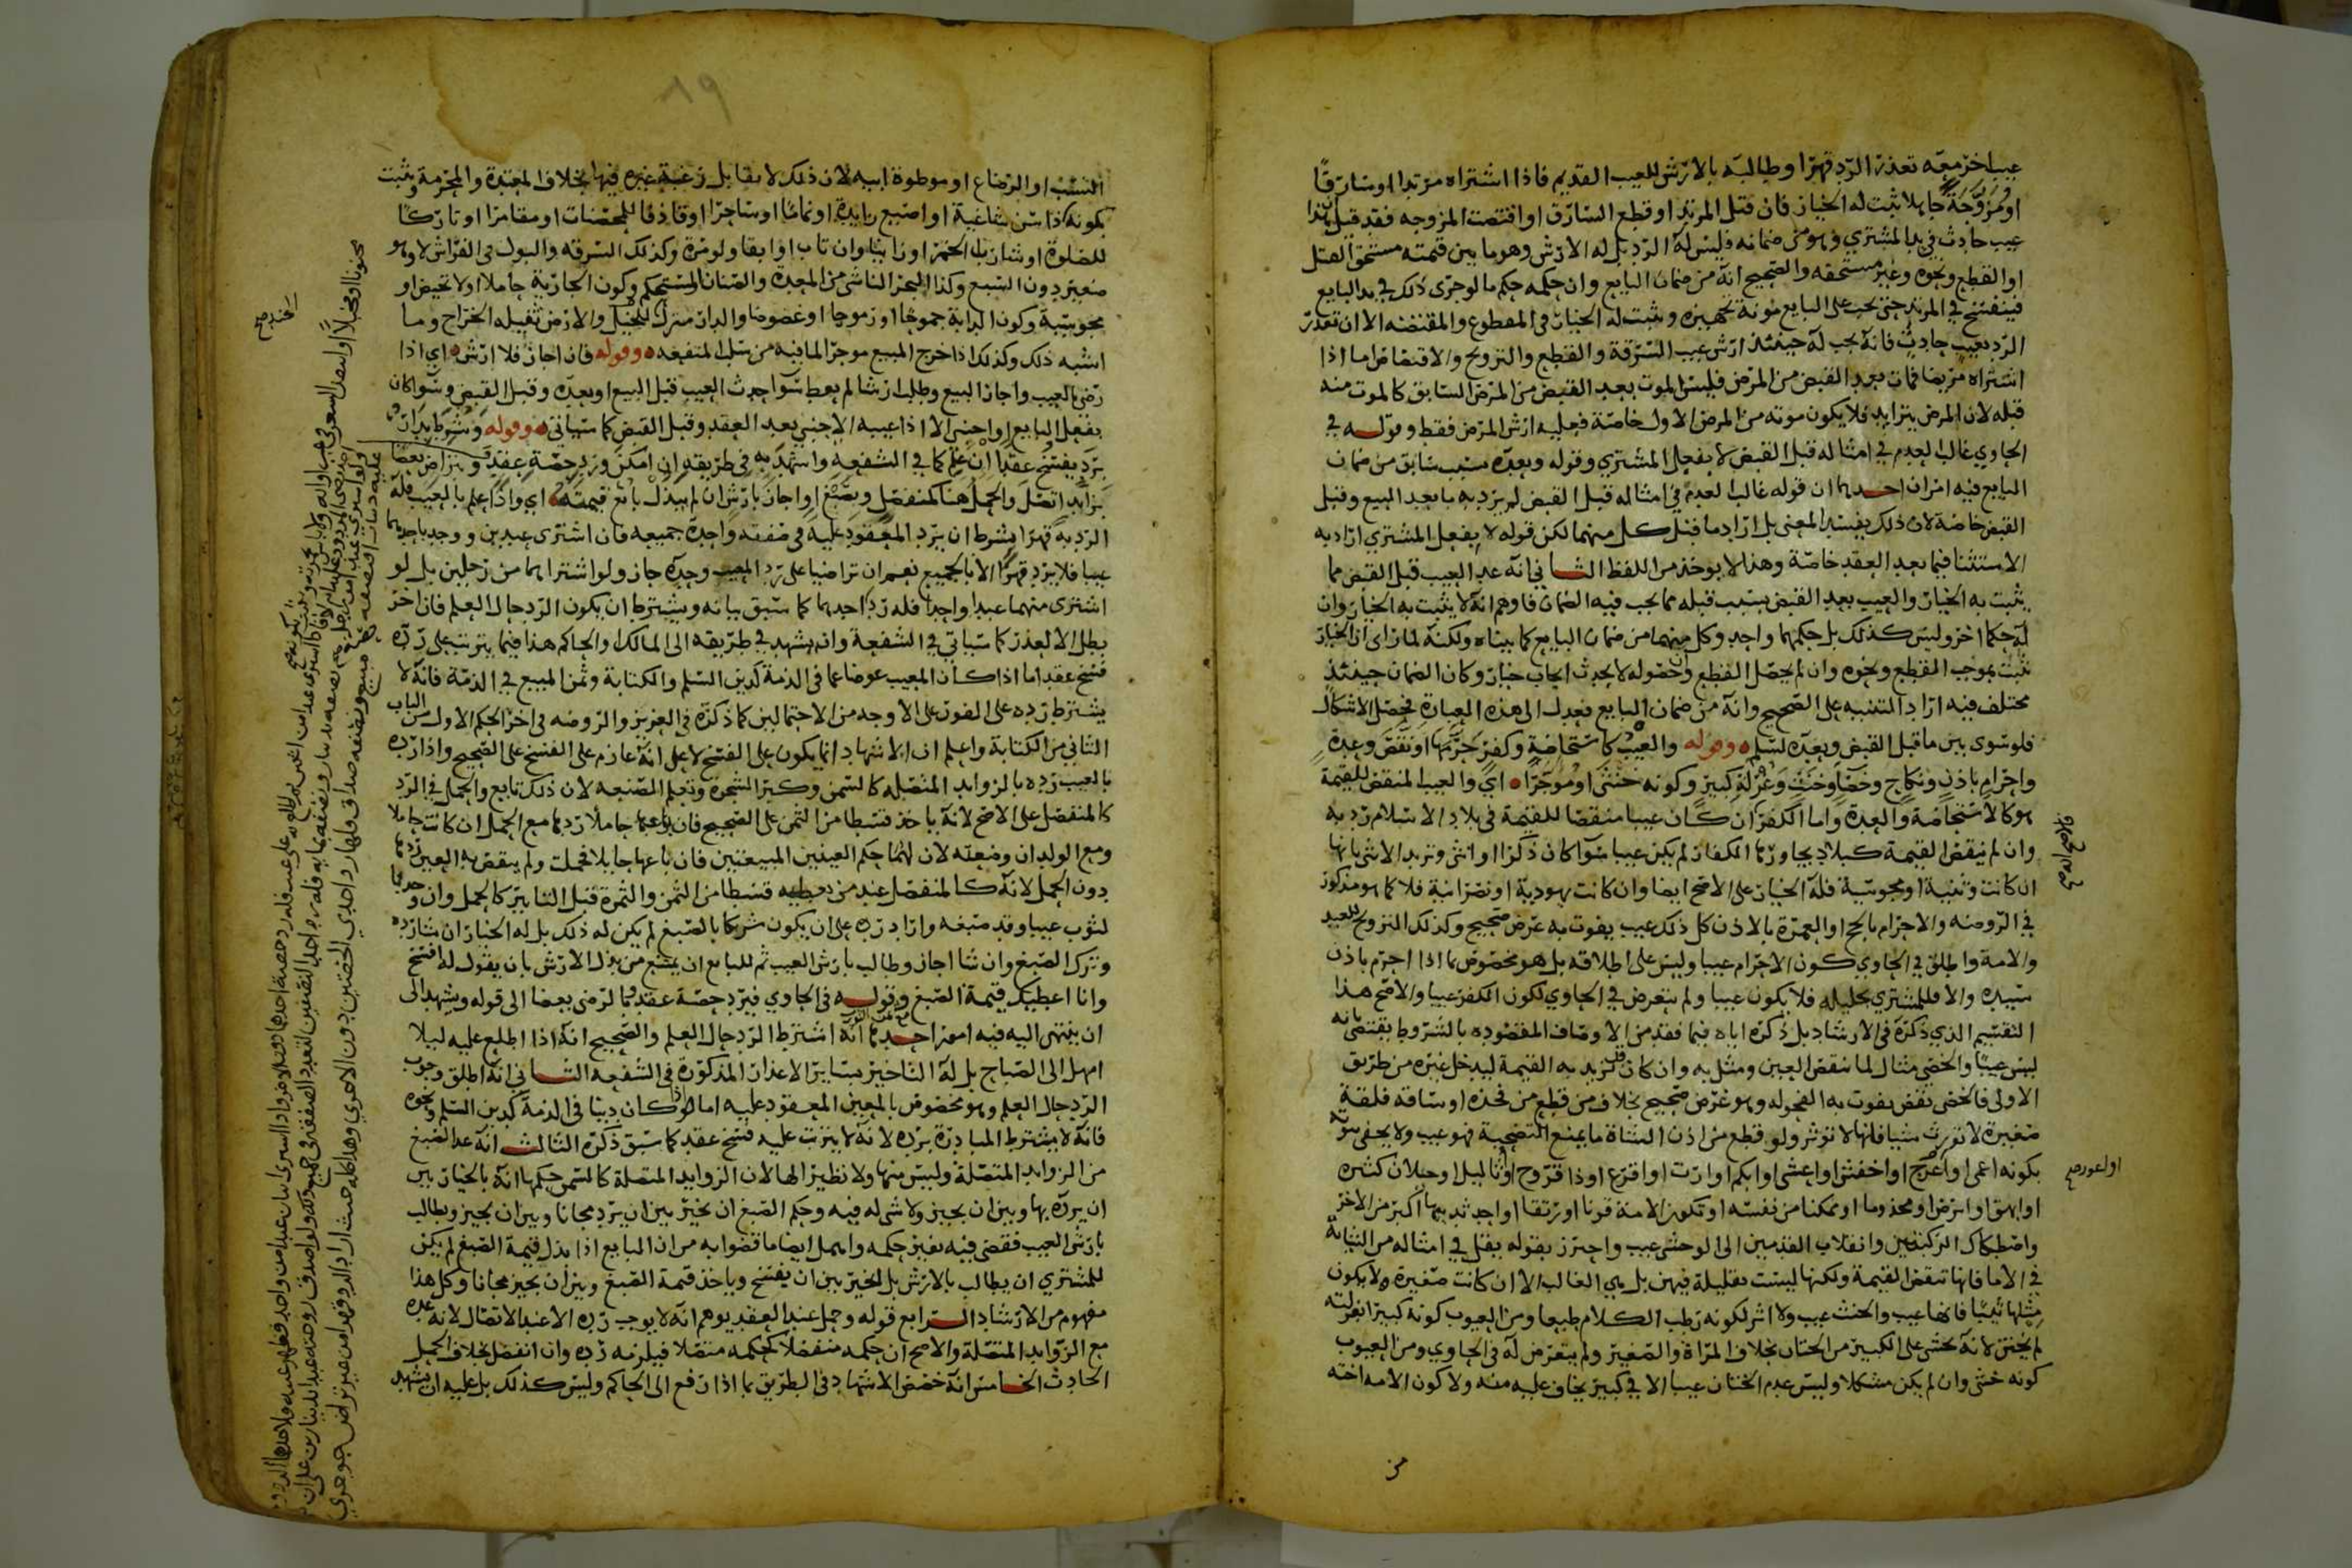 عيبا اخر معه تعذر الرد قهرا وطالبه بالارش للعيب القديم فاذا اشتراه مرتدا او سارقا
او مزوجة جاهلا ثبت له الخيار فان قتل المرتد او قطع السارق او افتضت المزوجه فقد قيل هذا
عيب حادث في يد المشتري وهو من ضمانه فليس له الرد بل له الارش وهو ما بين قيمته مستحق القتل
او القطع ونحوه وغير مستحقه والصحيح انه من ضمان البايع وان حكمه حكم ما لو جرى ذلك في يد البايع
فينفسخ في المرتد حتى يجب على البايع مونة تجهيزه ويثبت له الخيار في المقطوع والمفتضه الا ان تعذر
الرد بعيب حادث فانه يجب له حينئذ ارش عيب السرقة والقطع والتزويج والافتضاض اما اذا
اشتراه مريضا فمات بعد القبض من المرض فليس الموت بعد القبض من المرض السابق كالموت منه
قبله لان المرض يتزايد فلا يكون موته من المرض الاول خاصة فعليه ارش المرض فقط وقوله في
الحاوي غالب العدم في امثاله قبل القبض لا بفعل المشتري وقوله وبعده بسبب سابق من ضمان
البايع فيه امران احدهما ان قوله غالب العدم في امثاله قبل القبض لم يرد به ما بعد البيع وقبل
القبض خاصة لان ذلك يفسد المعنى بل اراد ما قبل كل منهما لكن قوله لا بفعل المشتري اراد به
الاستثنا فيما بعد العقد خاصة وهذا لا يوخذ من اللفظ الثاني انه عد العيب قبل القبض مما
يثبت به الخيار والعيب بعد القبض بسبب قبله مما يجب فيه الضمان فاوهم انه لا يثبت به الخيار وان
له حكما اخر وليس كذلك بل حكمهما واحد وكل منهما من ضمان البايع كما بيناه ولكنه لما راى ان الخيار
ثبت بموجب القطع ونحوه وان لم يحصل القطع وان حصوله لا يحدث ايجاب خيار وكان الضمان حينئذ
مختلف فيه اراد التنبيه على الصحيح وانه من ضمان البايع فعدل الى هذه العبارة فحصل الاشكال
فلو سوى بين ما قبل القبض وبعده لسلم وقوله والعيب كاستحاضة وكفر حرمها او نقص وعدة
واحرام باذن ونكاح وخصا وخنث وغرلة كبير وكونه خنثى او موجرا اي والعيب المنقص للقيمة
هو كالاستحاضة والعدة واما الكفر ان كان عيبا منقصا للقيمة في بلاد الاسلام رد به
وان لم ينقص القيمة كبلاد يجاورها الكفار لم يكن عيبا سوا كان ذكرا او انثى وتزيد الانثى بانها
ان كانت وثنية او مجوسية فله الخيار على الاصح ايضا وان كانت يهودية او نصرانية فلا كما هو مذكور
في الروضه والاحرام بالحج او العمرة بالاذن كل ذلك عيب يفوت به غرض صحيح وكذلك التزويج للعبد
والامة واطلق في الحاوي كون الاحرام عيبا وليس على اطلاقه بل هو مخصوص بما اذا احرم باذن
سيده والا فللمشتري تحليله فلا يكون عيبا ولم يتعرض في الحاوي لكون الكفر عيبا والاصح هذا
التقسيم الذي ذكره في الارشاد بل ذكره اياه فيما فقد من الاوصاف المقصوده بالشروط يقتضي انه
ليس عيبا والخصي مثال لما ينقص العين ومثل به وان كان قد تزيد به القيمة ليدخل غيره من طريق
الاولى فالخصى نقص يفوت به الفحوله وهو غرض صحيح بخلاف من قطع من فخذه او ساقه فلقة
صغيرة لا تورث شينا فانها لا توثر ولو قطع من اذن الشاة ما يمنع التضحية فهو عيب ولا يخفى ثبوته
بكونه اعمى او اعرج او اخفش او اعشى او ابكم او ارت او اقرع او ذا قروح او ثاليل او خيلان كثيره
او ابهق او ابرص او مجذوما او ممكنا من نفسه او تكون الامة قرنا او رتقا او احد ثدييها اكبر من الاخر
واصطكاك الركبتين وانقلاب القدمين الى الوحشي عيب واحترز بقوله يقل في امثاله من الثيابة
في الاما فانها تنقص القيمة ولكنها ليست بقليلة فيهن بل هي الغالب الا ان كانت صغيرة ولا يكون
مثلها ثيبا فانها عيب والخنث عيب ولا اثر لكونه رطب الكلام طبعا ومن العيوب كونه كبيرا بغرلته
لم يختن لانه يخشى على الكبير من الختان بخلاف المراة والصغير ولم يتعرض له في الحاوي ومن العيوب
كونه خنثى وان لم يكن مشكلا وليس عدم الختان عيبا الا في كبير يخاف عليه منه ولا كون الامه اخته
او اعور صح
من
١٩
النسب او الرضاع او موطوة ابيه لان ذلك لا يقابل رغبة غيره فيها بخلاف المعتدة والمحرمة ويثبت
بكونه ذا سن شاغية او اصبع زايدة او نماما او ساحرا او قاذفا للمحصنات او مقامرا او تاركا
للصلوة او شاربا للخمر او زانيا وان تاب او ابقا ولو مرة وكذلك السرقه والبول في الفراش لا وهو
صغير دون السبع وكذا البخر الناشي من المعدة والصنان المستحكم وكون الجارية حاملا او لا تحيض او
مجوسية وكون الدابة جموحا او رموحا او عضوضا والدار منزل للخيل والارض ثقيله الخراج وما
اشبه ذلك وكذلك اذا خرج المبيع موجرا لما فيه من سلب المنفعه وقوله فان اجاز فلا ارش اي اذا
رضي بالعيب واجاز البيع وطلب ارشا لم يعط سوا حدث العيب قبل البيع او بعده وقبل القبض وسوا كان
بفعل البايع او اجنبي الا اذا عيبه الاجنبي بعد العقد وقبل القبض كما سياتي وقوله وشرط بدار
برد بفسخ عقد ان علم كما في الشفعه واشهد به في طريقه ان امكن ورد حصة عقد وبتراض بعضا
بزايد اتصل والحمل هنا كمنفصل وبصبغ او اجاز بارش ان لم يبذل بائع قيمته اي واذا علم بالعيب فله
الرد به قهرا بشرط ان يرد المعقود عليه في صفقة واحدة جميعه فان اشترى عبدين ووجد باحدهما
عيبا فلا يرد قهرا الا بالجميع نعم ان تراضيا على رد المعيب وحده جاز ولو اشتراهما من رجلين بل لو
اشترى منهما عبدا واحدا فله رد احدهما كما سبق بيانه ويشترط ان يكون الرد حال العلم فان اخر
بطل الا لعذر كما سياتي في الشفعة وانه يشهد في طريقه الى المالك او الحاكم هذا فيما يترتب على رده
فسخ عقد اما اذا كان المعيب عوضا عما في الذمة كدين السلم والكتابة وثمن المبيع في الذمة فانه لا
يشترط رده على الفور على الاوجه من الاحتمالين كما ذكره في العزيز والروضه في اخر الحكم الاول من الباب
الثاني من الكتابة واعلم ان الاشهاد انما يكون على الفسخ لا على انه عازم على الفسخ على الصحيح واذا رده
بالعيب رده بالزوايد المتصله كالسمن وكبر الشجرة وتعلم الصنعه لان ذلك تابع والحمل في الرد
كالمنفصل على الاصح لانه ياخذ قسطا من الثمن على الصحيح فان باعها حاملا ردها مع الحمل ان كانت حاملا
ومع الولد ان وضعته لان لهما حكم العينين المبيعتين فان باعها حايلا فحملت ولم ينقص به العين ردها
دون الحمل لانه كالمنفصل عند من يعطيه قسطا من الثمن والثمرة قبل التابير كالحمل وان وجد بها
لثوب عيبا وقد صبغه واراد رده على ان يكون شريكا بالصبغ لم يكن له ذلك بل له الخيار ان شا رده
وترك الصبغ وان شا اجاز وطالب بارش العيب ثم للبايع ان يمتنع من بذل الارش بان يقول له افسخ
وانا اعطيك قيمة الصبغ وقوله في الحاوي فيرد حصة عقد وبالرضى بعضا الى قوله ويشهد الى
ان ينتهي اليه فيه امور احدها انه اشترط الرد حال العلم والصحيح انه اذا اطلع عليه ليلا
امهل الى الصباح بل له التاخير بساير الاعذار المذكورة في الشفعه الثاني انه اطلق وجوب
الرد حال العلم وهو مخصوص بالمعين المعقود عليه اما لو كان دينا في الذمة كدين السلم ونحوه
فانه لا يشترط المبادرة برده لانه لا يترتب عليه فسخ عقد كما سبق ذكره الثالث انه عد الصبغ
من الزوايد المتصلة وليس منها ولا نظير الها لان الزوايد المتصلة كالسمن حكمها انه بالخيار بين
ان يرده بها وبين ان يجيز ولا شي له فيه وحكم الصبغ ان يخير بين ان يرد مجانا وبين ان يجيز ويطالب
بارش العيب فقضى فيه بغير حكمه واهمل ايضا ما قضوا به من ان البايع اذا بذل قيمة الصبغ لم يكن
للمشتري ان يطالب بالارش بل يخير بين ان يفسخ وياخذ قيمة الصبغ وبين ان يجيز مجانا وكل هذا
مفهوم من الارشاد الرابع قوله وحمل عند العقد يوهم انه لا يوجب رده الا عند الاتصال لانه عده
مع الزوايد المتصلة والاصح ان حكمه منفصلا كحكمه متصلا فيلزمه رده وان انفصل بخلاف الحمل
الحادث الخامس انه خصص الاشهاد في الطريق بما اذا رفع الى الحاكم وليس كذلك بل عليه ان يشهد